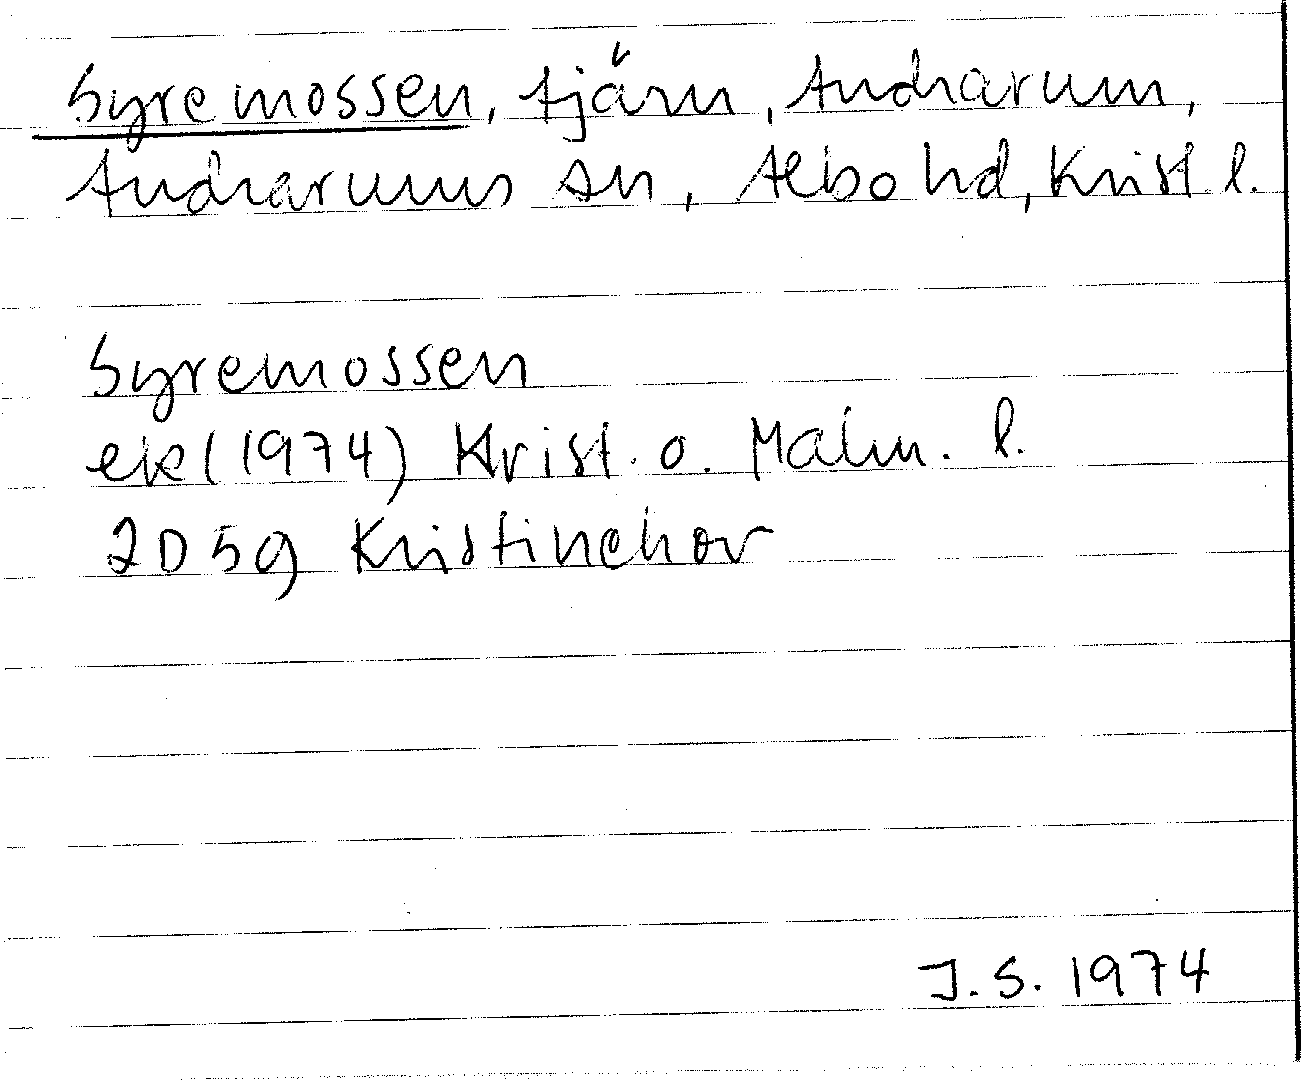 Syremossen, tjärn, Andrarum,
Andrarums sn, Albo hd, Krist l.
Syremossen
ek (1974) Krist. o. Malm. l.
2D 5g Kristinehov
J.S. 1974